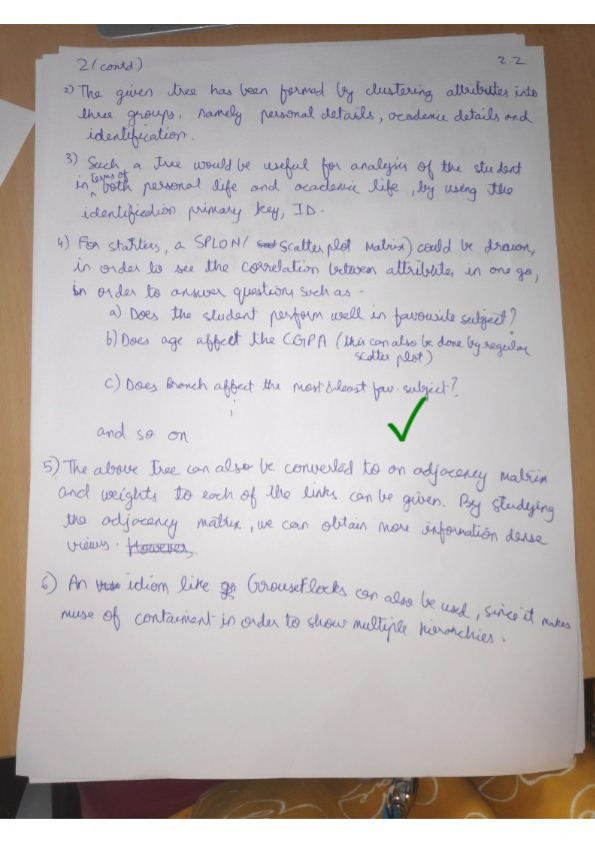 2(contd)
2.2
2) The given tree has been formed by clustering attributes into
three groups, namely personal details, academic details and
identification.
3) Such a tree would be useful for analysis of the student
in terms of both personal life and academic life, by using the
identification primary key, ID.
4) For starters, a SPLOM/ Scatterplot Matrix) could be drawn,
in order to see the correlation between attributes in one go,
in order to answer questions such as -
a) Does the student perform well in favourite subject?
b) Does age affect the CGPA (this can also be done by regular
scatter plot)
c) Does Branch affect the most & least fav. subject?
and so on
5) The above tree can also be converted to an adjacency matrix
and weights to each of the links can be given. By studying
the adjacency matrix, we can obtain more information dense
views. However,
6) An idiom like GrouseFlocks can also be used, since it makes
muse of containment in order to show multiple hierarchies.